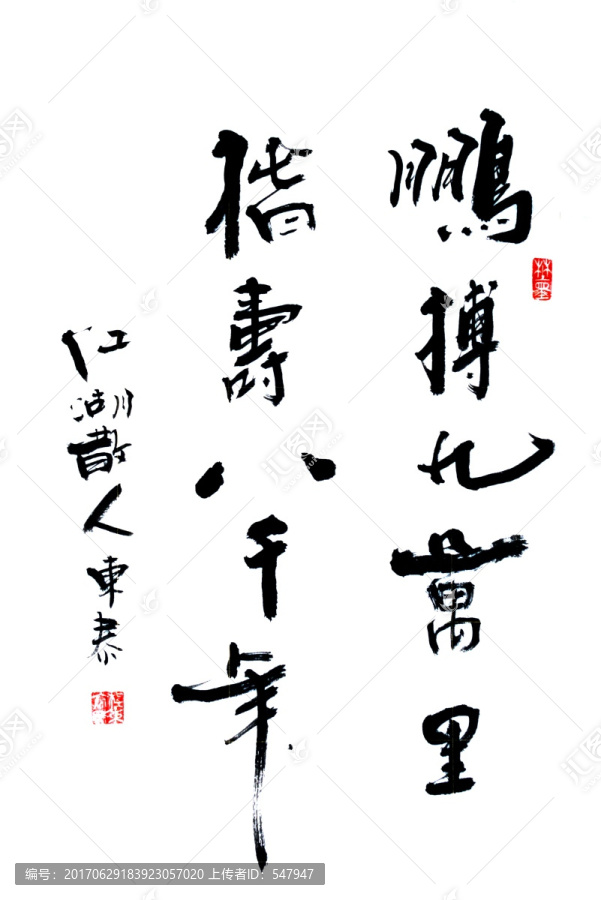 鵬搏九萬里
偕壽八千年
江湖散人東恭
编号:20170629183923057020 上传者ID:547947